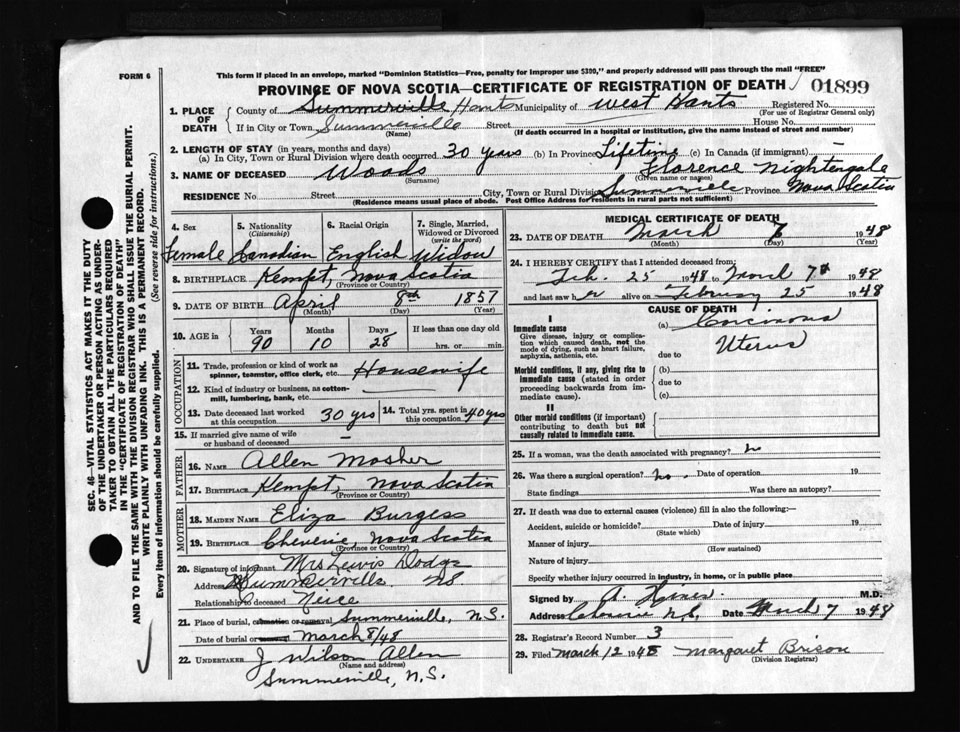 FORM 6
This form if placed in an envelope, marked "Dominion Statistics—Free, penalty for improper use $300," and properly addressed will pass through the mail "FREE"
PROVINCE OF NOVA SCOTIA—CERTIFICATE OF REGISTRATION OF DEATH 01899
1. PLACE OF DEATH { County of Summerville Hants Municipality of West Hants Registered No.
(For use of Registrar General only)
If in City or Town Summerville Street House No.
(Name) (If death occurred in a hospital or institution, give the name instead of street and number)
2. LENGTH OF STAY (in years, months and days)
(a) In City, Town or Rural Division where death occurred 30 years (b) In Province Lifetime (c) In Canada (if immigrant) —
3. NAME OF DECEASED Woods Florence Nightengale
(Surname) (Given name or names)
RESIDENCE No Street City, Town or Rural Division Summerville Province Nova Scotia
(Residence means usual place of abode. Post Office Address for residents in rural parts not sufficient)
4. Sex 5. Nationality (Citizenship) 6. Racial Origin 7. Single, Married, Widowed or Divorced (write the word)
Female Canadian English Widow
8. BIRTHPLACE Kempt, Nova Scotia
(Province or Country)
9. DATE OF BIRTH April 8th 1857
(Month) (Day) (Year)
10. AGE in Years Months Days If less than one day old
90 10 28 hrs. or min.
OCCUPATION
11. Trade, profession or kind of work as spinner, teamster, office clerk, etc. Housewife
12. Kind of industry or business, as cotton-mill, lumbering, bank, etc.
13. Date deceased last worked at this occupation 30 yrs 14. Total yrs. spent in this occupation 40 yrs
15. If married give name of wife or husband of deceased —
FATHER
16. NAME Allen Mosher
17. BIRTHPLACE Kempt, Nova Scotia
(Province or Country)
MOTHER
18. MAIDEN NAME Eliza Burgess
19. BIRTHPLACE Cheverie, Nova Scotia
(Province or Country)
20. Signature of informant Mrs Lewis Dodge
Address Summerville, NS
Relationship to deceased Neice
21. Place of burial, cremation or removal Summerville, N.S.
Date of burial March 8/48
22. UNDERTAKER J Wilson Allen
(Name and address)
Summerville, N.S.
MEDICAL CERTIFICATE OF DEATH
23. DATE OF DEATH March 1948
(Month) (Day) (Year)
24. I HEREBY CERTIFY that I attended deceased from:
Feb. 25 1948 to March 7th 1948
and last saw her alive on February 25 1948
CAUSE OF DEATH
I
Immediate cause (a) Carcinoma
Give disease, injury or complication which caused death, not the mode of dying, such as heart failure, asphyxia, asthenia, etc.
due to Uterus
Morbid conditions, if any, giving rise to immediate cause (stated in order proceeding backwards from immediate cause).
(b)
due to
(c)
II
Other morbid conditions (if important) contributing to death but not causally related to immediate cause.
25. If a woman, was the death associated with pregnancy? no
26. Was there a surgical operation? no. Date of operation 19
State findings Was there an autopsy?
27. If death was due to external causes (violence) fill in also the following:—
Accident, suicide or homicide? Date of injury 19
(State which)
Manner of injury
(How sustained)
Nature of injury
Specify whether injury occurred in industry, in home, or in public place
Signed by A. M.D.
Address N.S. Date March 7 1948
28. Registrar's Record Number 3
29. Filed March 12 1948 Margaret Brison
(Division Registrar)
SEC. 46—VITAL STATISTICS ACT MAKES IT THE DUTY
OF THE UNDERTAKER OR PERSON ACTING AS UNDER-
TAKER TO OBTAIN ALL THE PARTICULARS REQUIRED
IN THE "CERTIFICATE OF REGISTRATION OF DEATH"
AND TO FILE THE SAME WITH THE DIVISION REGISTRAR WHO SHALL ISSUE THE BURIAL PERMIT.
WRITE PLAINLY WITH UNFADING INK. THIS IS A PERMANENT RECORD.
Every item of information should be carefully supplied. (See reverse side for instructions.)